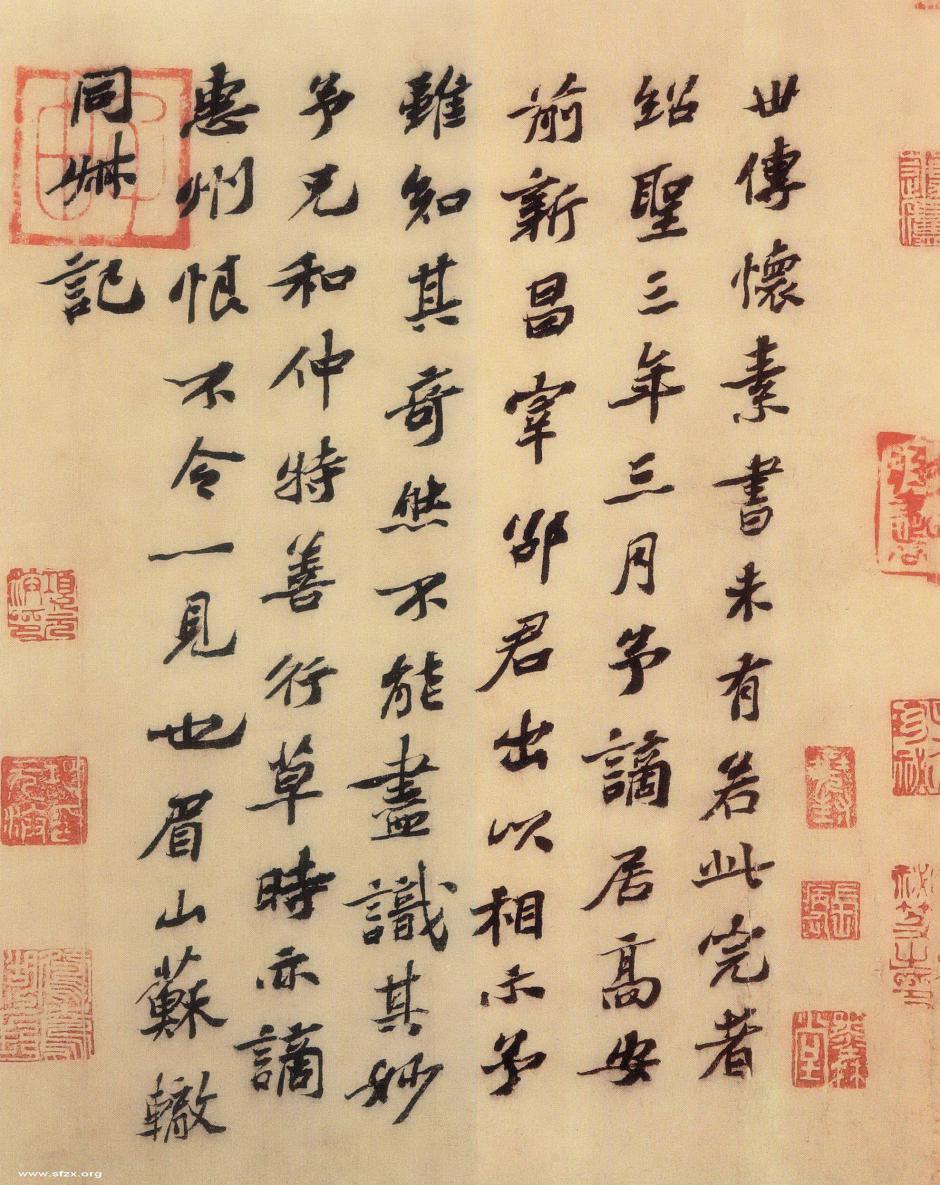 世傳懷素書未有若此完者
紹聖三年三月予謫居高安
前新昌宰邵君出以相示予
雖知其奇然不能盡識其妙
予兄和仲特善行草時亦謫
惠州恨不令一見也眉山蘇轍
同叔記
www.sfzx.org